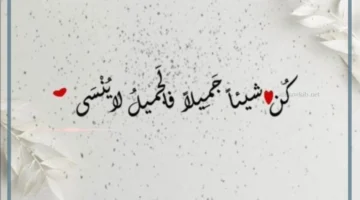 كُن شيئاً جَمِيلاً فالجَميلُ لا يُنْسَى